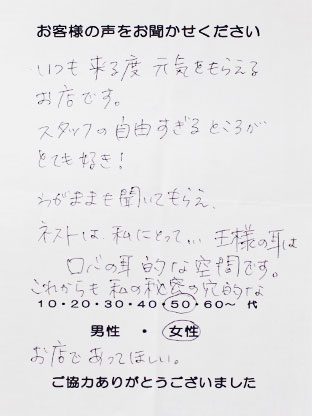 お客様の声をお聞かせください
いつも来る度 元気をもらえる
お店です。
スタッフの自由すぎるところが
とても好き!
わがままも聞いてもらえ、
ネストは、私にとって、、、王様の耳は
ロバの耳 的な空間です。
これからも 私の秘密の穴的な
10・20・30・40・50・60〜 代
男性 ・ 女性
お店であってほしい。
ご協力ありがとうございました